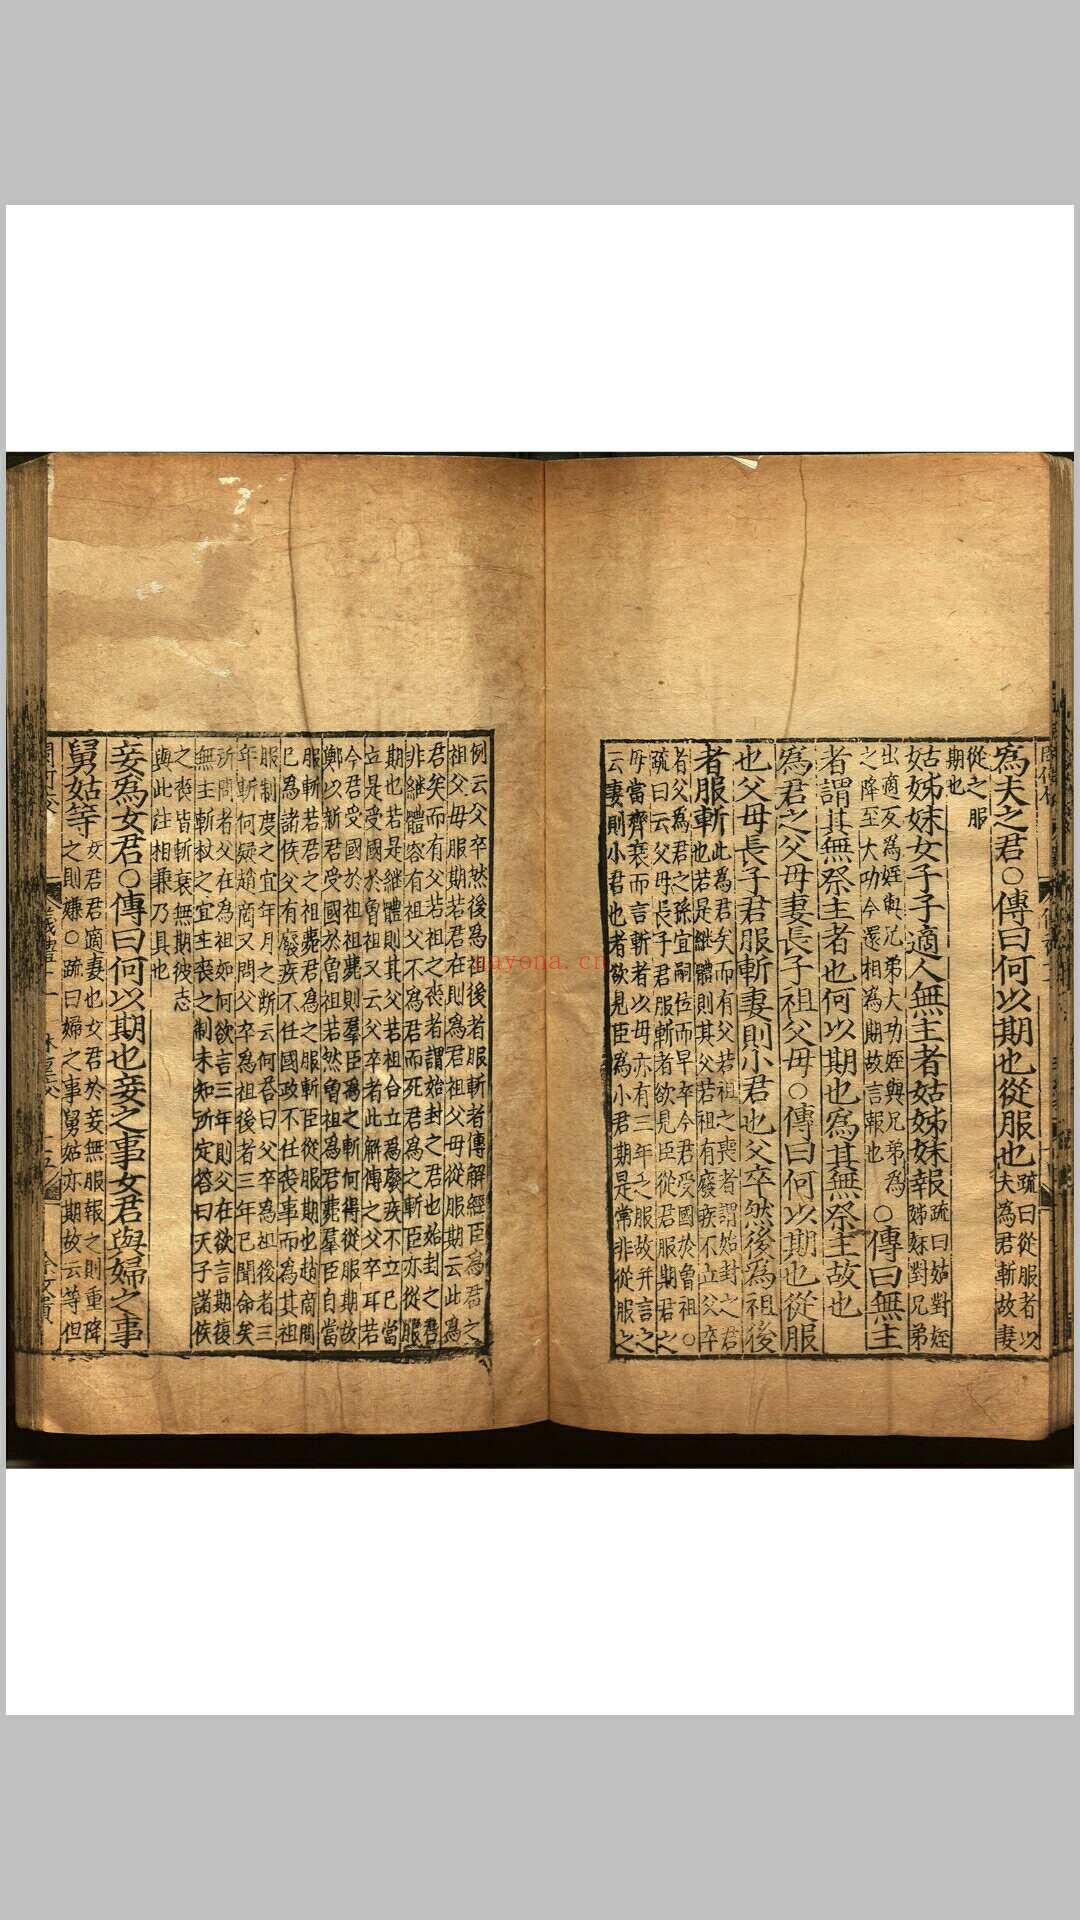 爲夫之君○傳曰何以期也從服也
疏曰從服者以
夫為君斬故妻
從之服
期也
姑姊妹女子子適人無主者姑姊妹報
疏曰姑對姪
姊妹對兄弟
出適反為姪與兄弟大功姪與兄弟為
之降至大功今還相為期故言報也
○傳曰無主
者謂其無祭主者也何以期也爲其無祭主故也
爲君之父母妻長子祖父母○傳曰何以期也從服
也父母長子君服斬妻則小君也父卒然後為祖後
者服斬
此為君矣而有父若祖之喪者謂始封之君
也若是繼體則其父若祖有廢疾不立父卒
者父為君之孫宜嗣位而早卒今君受國於曾祖○
疏曰云父母長子君服斬者欲見臣從服期君之
母當齊衰而言斬者以母亦有三年之服故并言之
云妻則小君也者欲見臣為小君期是常非從服之
例云父卒然後為祖後者服斬者傳解經臣為君之
祖父母服期若君在則為君祖父母從服期云此為
君矣而有父若祖之喪者謂始封之君也始封之君
非繼體容有祖父不為君而死君為之斬臣亦從服
期也若是繼體則其父若祖合立為廢疾不立已當
立是受國於曾祖又云父卒者此解傳之父卒耳若
今君受國於祖祖薨則羣臣為之斬何得從服期故
鄭以新君受國於曾祖若然曾祖為君薨羣臣自當
服斬若君之祖薨君為之服斬臣從服期也趙商問
已為諸侯父有廢疾不任國政不任喪事而為其祖
服制度之宜年月之斷云何荅曰父卒為祖後者三
年斬何疑趙商又問父卒為祖後者三年已聞命矣
所問者父在為祖如何欲言三年則父在欲言期復
無主斬杖之宜主喪之制未知所定荅曰天子諸侯
之喪皆斬衰無期彼志
與此註相兼乃具也
妾為女君○傳曰何以期也妾之事女君與婦之事
舅姑等
女君君適妻也女君於妾無服報之則重降
之則嫌○疏曰婦之事舅姑亦期故云等但
nayona.cn